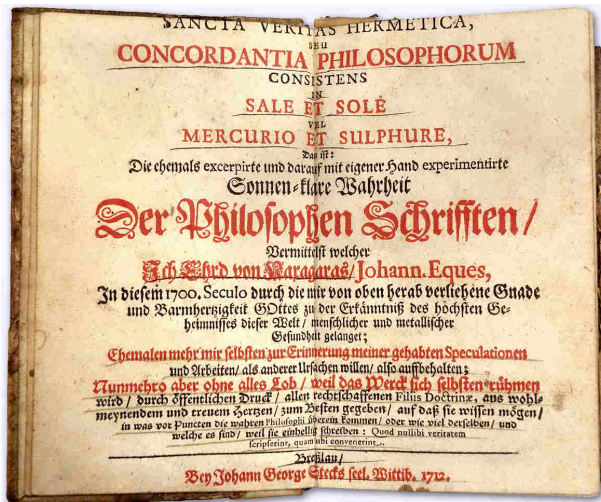 SANCTA VERITAS HERMETICA,
SEU
CONCORDANTIA PHILOSOPHORUM
CONSISTENS
IN
SALE ET SOLE
VEL
MERCURIO ET SULPHURE,
Das ist:
Die ehemals excerpirte und darauf mit eigener Hand experimentirte
Sonnen-klare Wahrheit
Der Philosophen Schrifften/
Vermittelst welcher
Ich Ehrd von Naxagoras/ Johann. Eques,
In diesem 1700. Seculo durch die mir von oben herab verliehene Gnade
und Barmhertzigkeit GOttes zu der Erkänntniß des höchsten Ge-
heimnisses dieser Welt/ menschlicher und metallischer
Gesundheit gelanget;
Ehemalen mehr mir selbsten zur Erinnerung meiner gehabten Speculationen
und Arbeiten/ als anderer Ursachen willen/ also auffbehalten;
Nunmehro aber ohne alles Lob/ weil das Werck sich selbsten rühmen
wird/ durch öffentlichen Druck/ allen rechtschaffenen Filiis Doctrinæ, aus wohl-
meynendem und treuem Hertzen/ zum Besten gegeben/ auf daß sie wissen mögen/
in was vor Puncten die wahren Philosophi überein kommen/ oder wie viel derselben/ und
welche es sind/ weil sie einhellig schreiben: Quod nullibi veritatem
scripserint, quam ubi convenerint.
Breßlau/
Bey Johann George Stecks seel. Wittib. 1712.